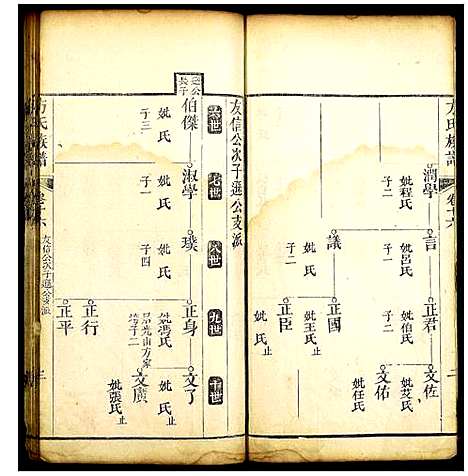 方氏族譜
卷十六
潤學
妣程氏
子二
言
妣呂氏
子二
議
子二
正君
妣伯氏
子二
正國
妣王氏
止
正臣
妣氏
止
文佐
妣艾氏
止
文佑
妣任氏
友信公次子遜公支派
六世
七世
八世
九世
十世
伯傑
妣氏
子三
淑學
妣氏
子一
璞
妣氏
子四
正身
妣馮氏
子二
正行
正平
文了
文廣
妣張氏
止
方氏族譜
卷十六
友信公次子遜公支派